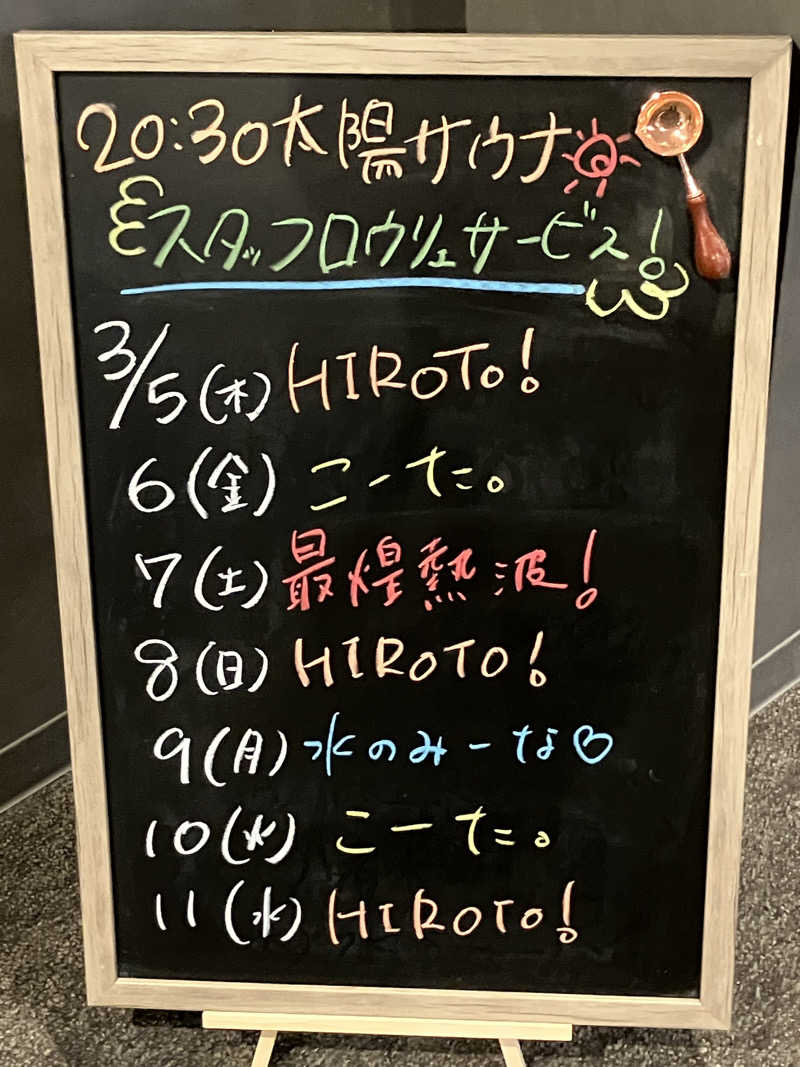 20:30太陽サウナ
スタッフロウリュサービス!
3/5(木) HIROTO!
6(金) こーた。
7(土) 最煌熱波!
8(日) HIROTO!
9(月) 水のみーな♡
10(火) こーた。
11(水) HIROTO!